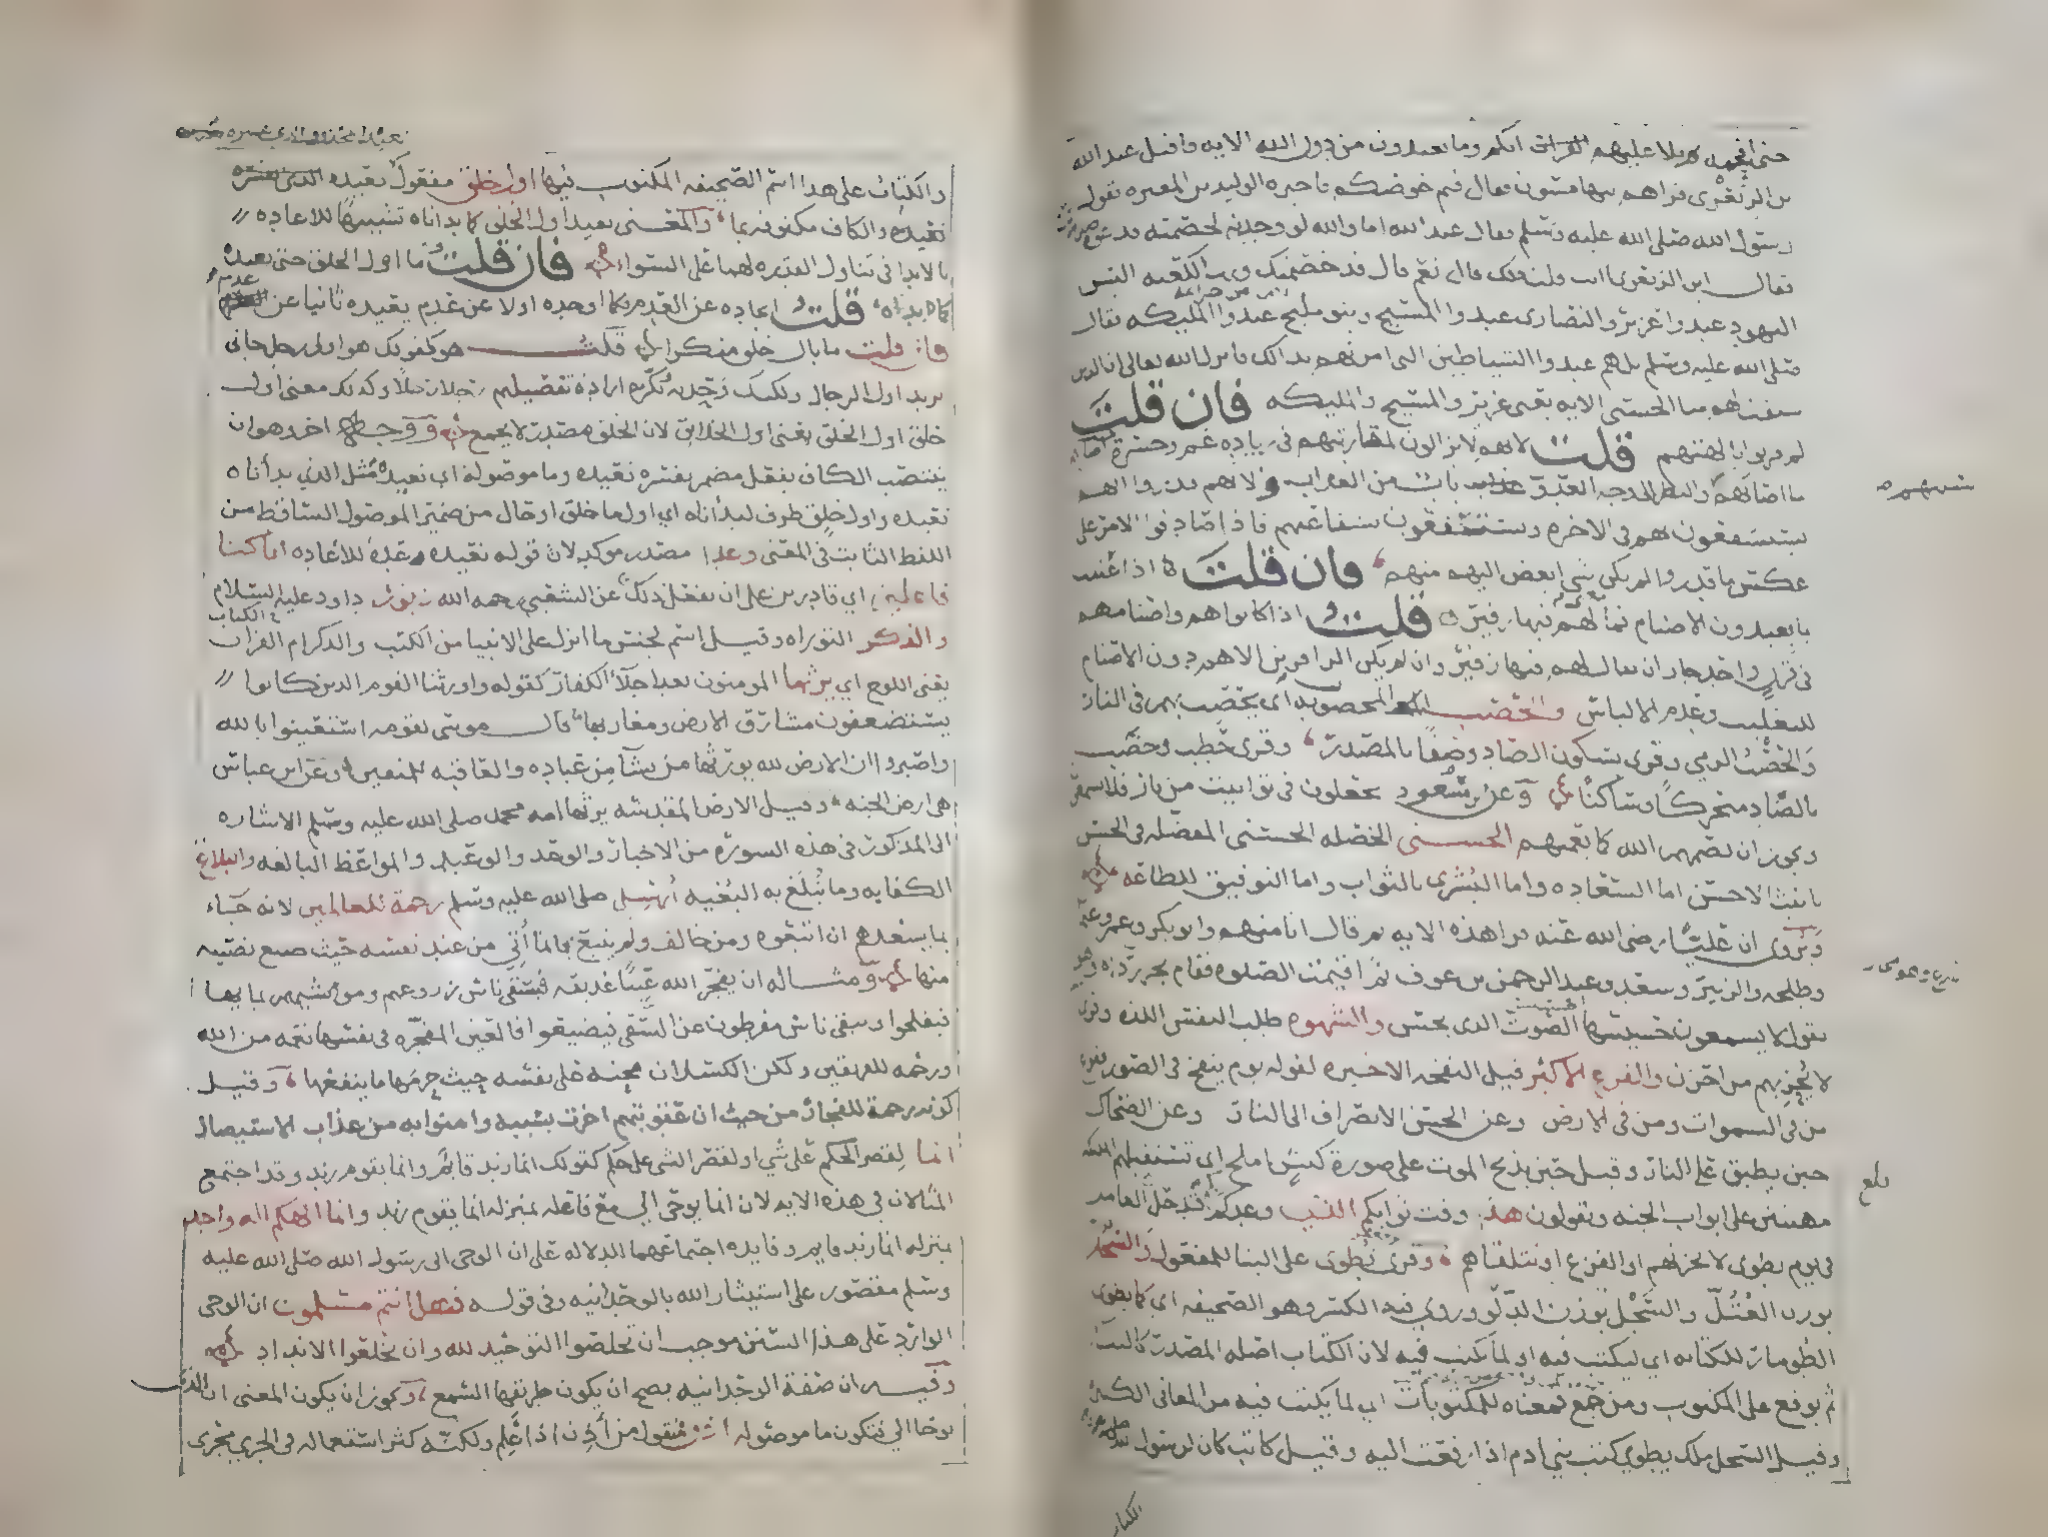 حتى افحمه م تلا عليهم انكم وما تعبدون من دون الله الايه فاقبل عبد الله
بن الزبعرى فراهم يتهامسون فقال فيم خوضكم فاخبره الوليد بن المغيره بقول
رسول الله صلى الله عليه وسلم فقال عبد الله اما والله لو وجدته لخصمته فدعوه
فقال ابن الزبعرى اانت قلت ذلك قال نعم قال قد خصمتك ورب الكعبه اليس
اليهود عبدوا عزيرا والنصارى عبدوا المسيح وبنو مليح عبدوا المليكه فقال
صلى الله عليه وسلم بل هم عبدوا الشياطين التى امرتهم بذالك فانزل الله تعالى ان الذين
سبقت لهم منا الحسنى الايه يعنى عزيرا والمسيح والمليكه فان قلت
لم قرنوا بالهتهم قلت لانهم لا يزالون لمقارنتهم فى زياده غم وحسرة
ما اصابهم والنظر الى وجه العدو باب من العذاب ولانهم قدروا انهم
يستشفعون بهم فى الاخره ويستنفعون بشفاعتهم فاذا صادفوا الامر على
عكس ما قدروا لم يكن شى ابغض اليهم منهم فان قلت اذا عنيت
بما يعبدون الاصنام فما لهم فيها زفير قلت اذا كانوا هم واصنامهم
فى قرن واحد جاز ان يقال لهم فيها زفير وان لم يكن الزافرين الا هم دون الاصنام
للتغليب وعدم الالباس والحصب المحصوب اى يحصب بهم فى النار
والحصب الرمى وقرى بسكون الصاد وصفا بالمصدر وقرى حطب وحضب
بالضاد متحركا وساكنا وعن بن مسعود يجعلون فى توابيت من نار فلا يسمعون
ويجوز ان يصمهم الله كما يعميهم الحسنى الخصله الحسنى المفضله فى الحسن
تانيث الاحسن اما السعاده واما البشرى بالثواب واما التوفيق للطاعه
ويروى ان عليا رضى الله عنه قرا هذه الايه ثم قال انا منهم وابو بكر وعمر وعثمن
وطلحه والزبير وسعد وعبد الرحمن بن عوف ثم اقيمت الصلوه فقام يجر رداه وهو
يقول لا يسمعون حسيسها الصوت الذى يحس والشهوه طلب النفس اللذه وقرى
لا يحزنهم من احزن والفزع الاكبر قيل النفخه الاخيره لقوله يوم ينفخ فى الصور ففزع
من فى السموات ومن فى الارض وعن الحسن الانصراف الى النار وعن الضحاك
حين يطبق على النار وقيل حين يذبح الموت على صورة كبش املح اى تستقبلهم المليكه
مهنئين على ابواب الجنه ويقولون هذا وقت ثوابكم الذى وعدكم ربكم قد حل العامل
فى يوم نطوى لا يحزنهم او الفزع او تتلقاهم وقرى تطوى على البنا للمفعول والسجل
بوزن العتل والسجل بوزن الدلو وروى فيه الكسر وهو الصحيفه اى كما يطوى
الطومار للكتابه اى ليكتب فيه او لما يكتب فيه لان الكتاب اصله المصدر كالبنا
ثم يوقع على المكتوب ومن جمع فمعناه للمكتوبات اى لما يكتب فيه من المعانى الكثيره
وقيل السجل ملك يطوى كتب بنى ادم اذا رفعت اليه وقيل كاتب كان لرسول الله
بلغ
الكتاب
والكتاب على هذا اسم الصحيفه المكتوب فيها اول خلق مفعول نعيد الذى يفسره
نعيده والكاف مكفوفه بما والمعنى نعيد اول الخلق كما بداناه تشبيها للاعاده
بالابدا فى تناول القدره لهما على السواء فان قلت وما اول الخلق حتى يعيده
كما بداه قلت ايجاده عن العدم فكما اوجده اولا عن عدم يعيده ثانيا عن عدم
فان قلت ما بال خلق منكرا قلت هو كقولك هو اول رجل جانى
يريد اول الرجال ولكنك وحدته ونكرته ارادة تفضيلهم رجلا رجلا وكذلك معنى اول
خلق اول الخلق بمعنى اول الخلايق لان الخلق مصدر لا يجمع ووجه اخر وهو ان
ينتصب الكاف بفعل مضمر يفسره نعيده وما موصولة اى نعيد مثل الذى بدأناه
نعيده واول خلق ظرف لبدأناه اى اول ما خلق او حال من ضمير الموصول الساقط من
اللفظ الثابت فى المعنى وعدا مصدر موكد لان قوله نعيده عدة للاعاده انا كنا
فاعلين اى قادرين على ان نفعل ذلك عن الشعبى رحمه الله زبور داود عليه السلام
والذكر التوراه وقيل اسم لجنس ما انزل على الانبيا من الكتب والذكر ام الكتاب
يعنى اللوح اى يرثها المومنون بعد اجلاء الكفار كقوله واورثنا القوم الذين كانوا
يستضعفون مشارق الارض ومغاربها قال موسى لقومه استعينوا بالله
واصبروا ان الارض لله يورثها من يشآ من عباده والعاقبه للمتقين وعن ابن عباس
هى ارض الجنه وقيل الارض المقدسه يرثها امه محمد صلى الله عليه وسلم الاشاره
الى المذكور فى هذه السورة من الاخبار والوعد والوعيد والمواعظ البالغه والبلاغ
الكفايه وما تبلغ به البغيه أرسل صلى الله عليه وسلم رحمة للعالمين لانه جاء
بما يسعدهم ان اتبعوه ومن خالف ولم يتبع فانما أتى من عند نفسه حيث ضيع نصيبه
منها ومثاله ان يفجر الله عينا غديقه فيسقى ناس زروعهم ومواشيهم بمايها
فيفلحوا ويبقى ناس مفرطون عن السقى فيضيعوا فالعين المفجره فى نفسها نعمه من الله
ورحمه للفريقين ولكن الكسلان محنه على نفسه حيث حرمها ما ينفعها وقيل
كونه رحمة للفجار من حيث ان عقوبتهم اخرت بسببه وامنوا به من عذاب الاستيصال
انما لقصر الحكم على شى او لقصر الشى على حكم كقولك انما زيد قايم وانما يقوم زيد وقد اجتمع
المثالان فى هذه الايه لان انما يوحى الى مع فاعله بمنزله انما يقوم زيد وانما الهكم اله واحد
بمنزله انما زيد قايم وفايده اجتماعهما الدلاله على ان الوحى الى رسول الله صلى الله عليه
وسلم مقصور على استيثار الله بالوحدانيه وفى قوله فهل انتم مسلمون ان الوحى
الوارد على هذا السنن موجب ان تخلصوا التوحيد لله وان تخلعوا الانداد
وفيه ان صفة الوحدانيه يصح ان يكون طريقها السمع ويجوز ان يكون المعنى ان الذى
يوحا الى فتكون ما موصوله اذن منقول من أذن اذا علم ولكنه كثر استعماله فى الجرى مجرى